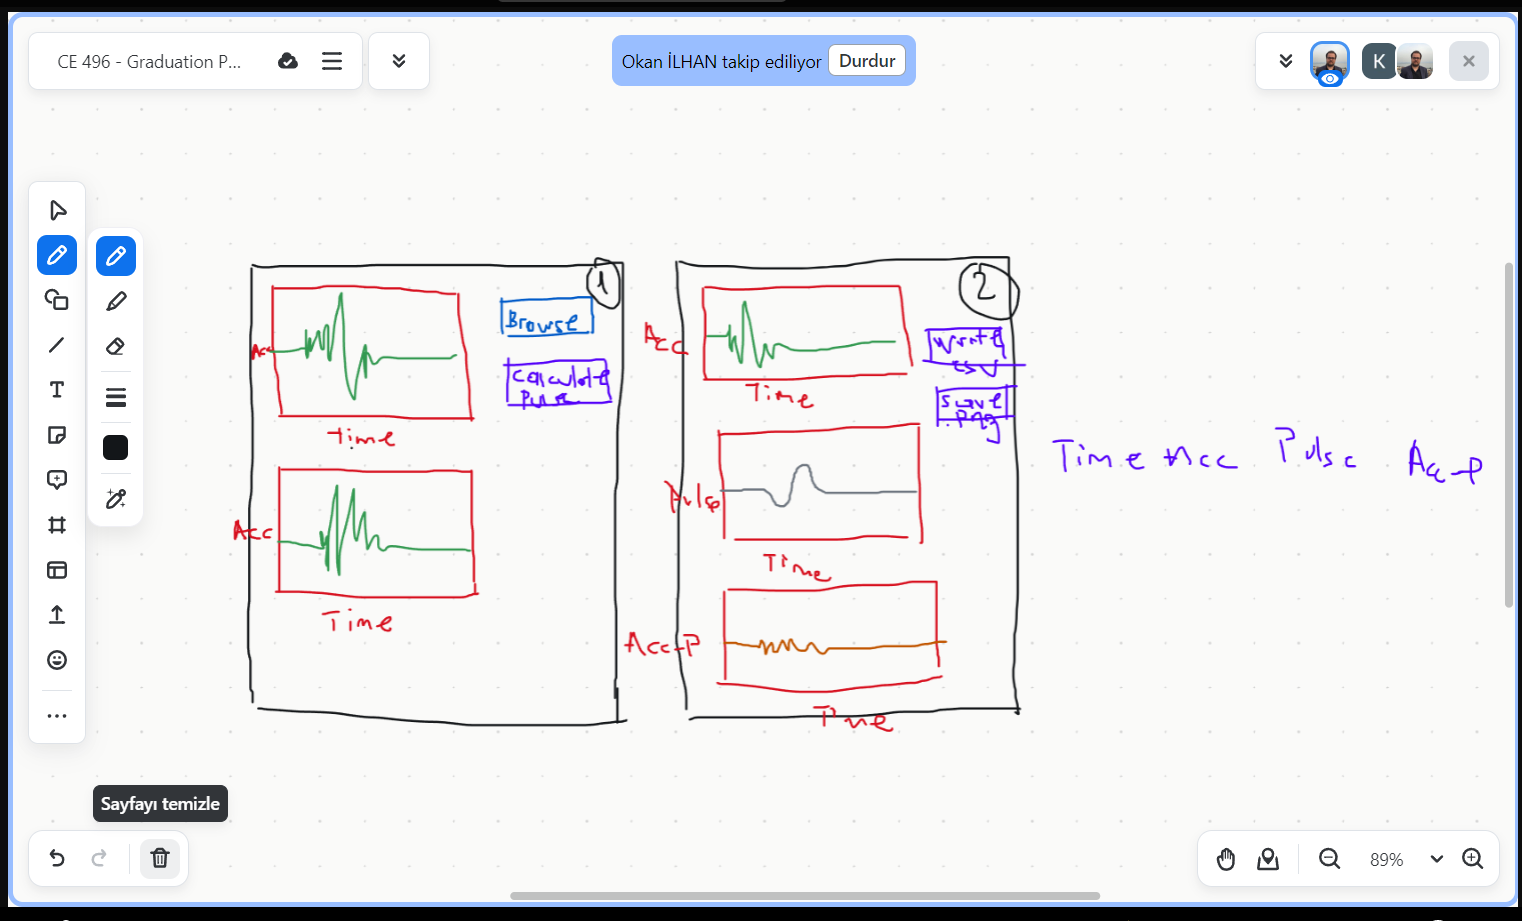 CE 496 - Graduation P...
Okan İLHAN takip ediliyor
Durdur
K
1
Acc
Time
Browse
Calculate
Pulse
Acc
Time
2
Acc
Time
Write
csv
save
.png
Pulse
Time
Acc-P
Time
Time Acc Pulse Acc-P
Sayfayı temizle
89%